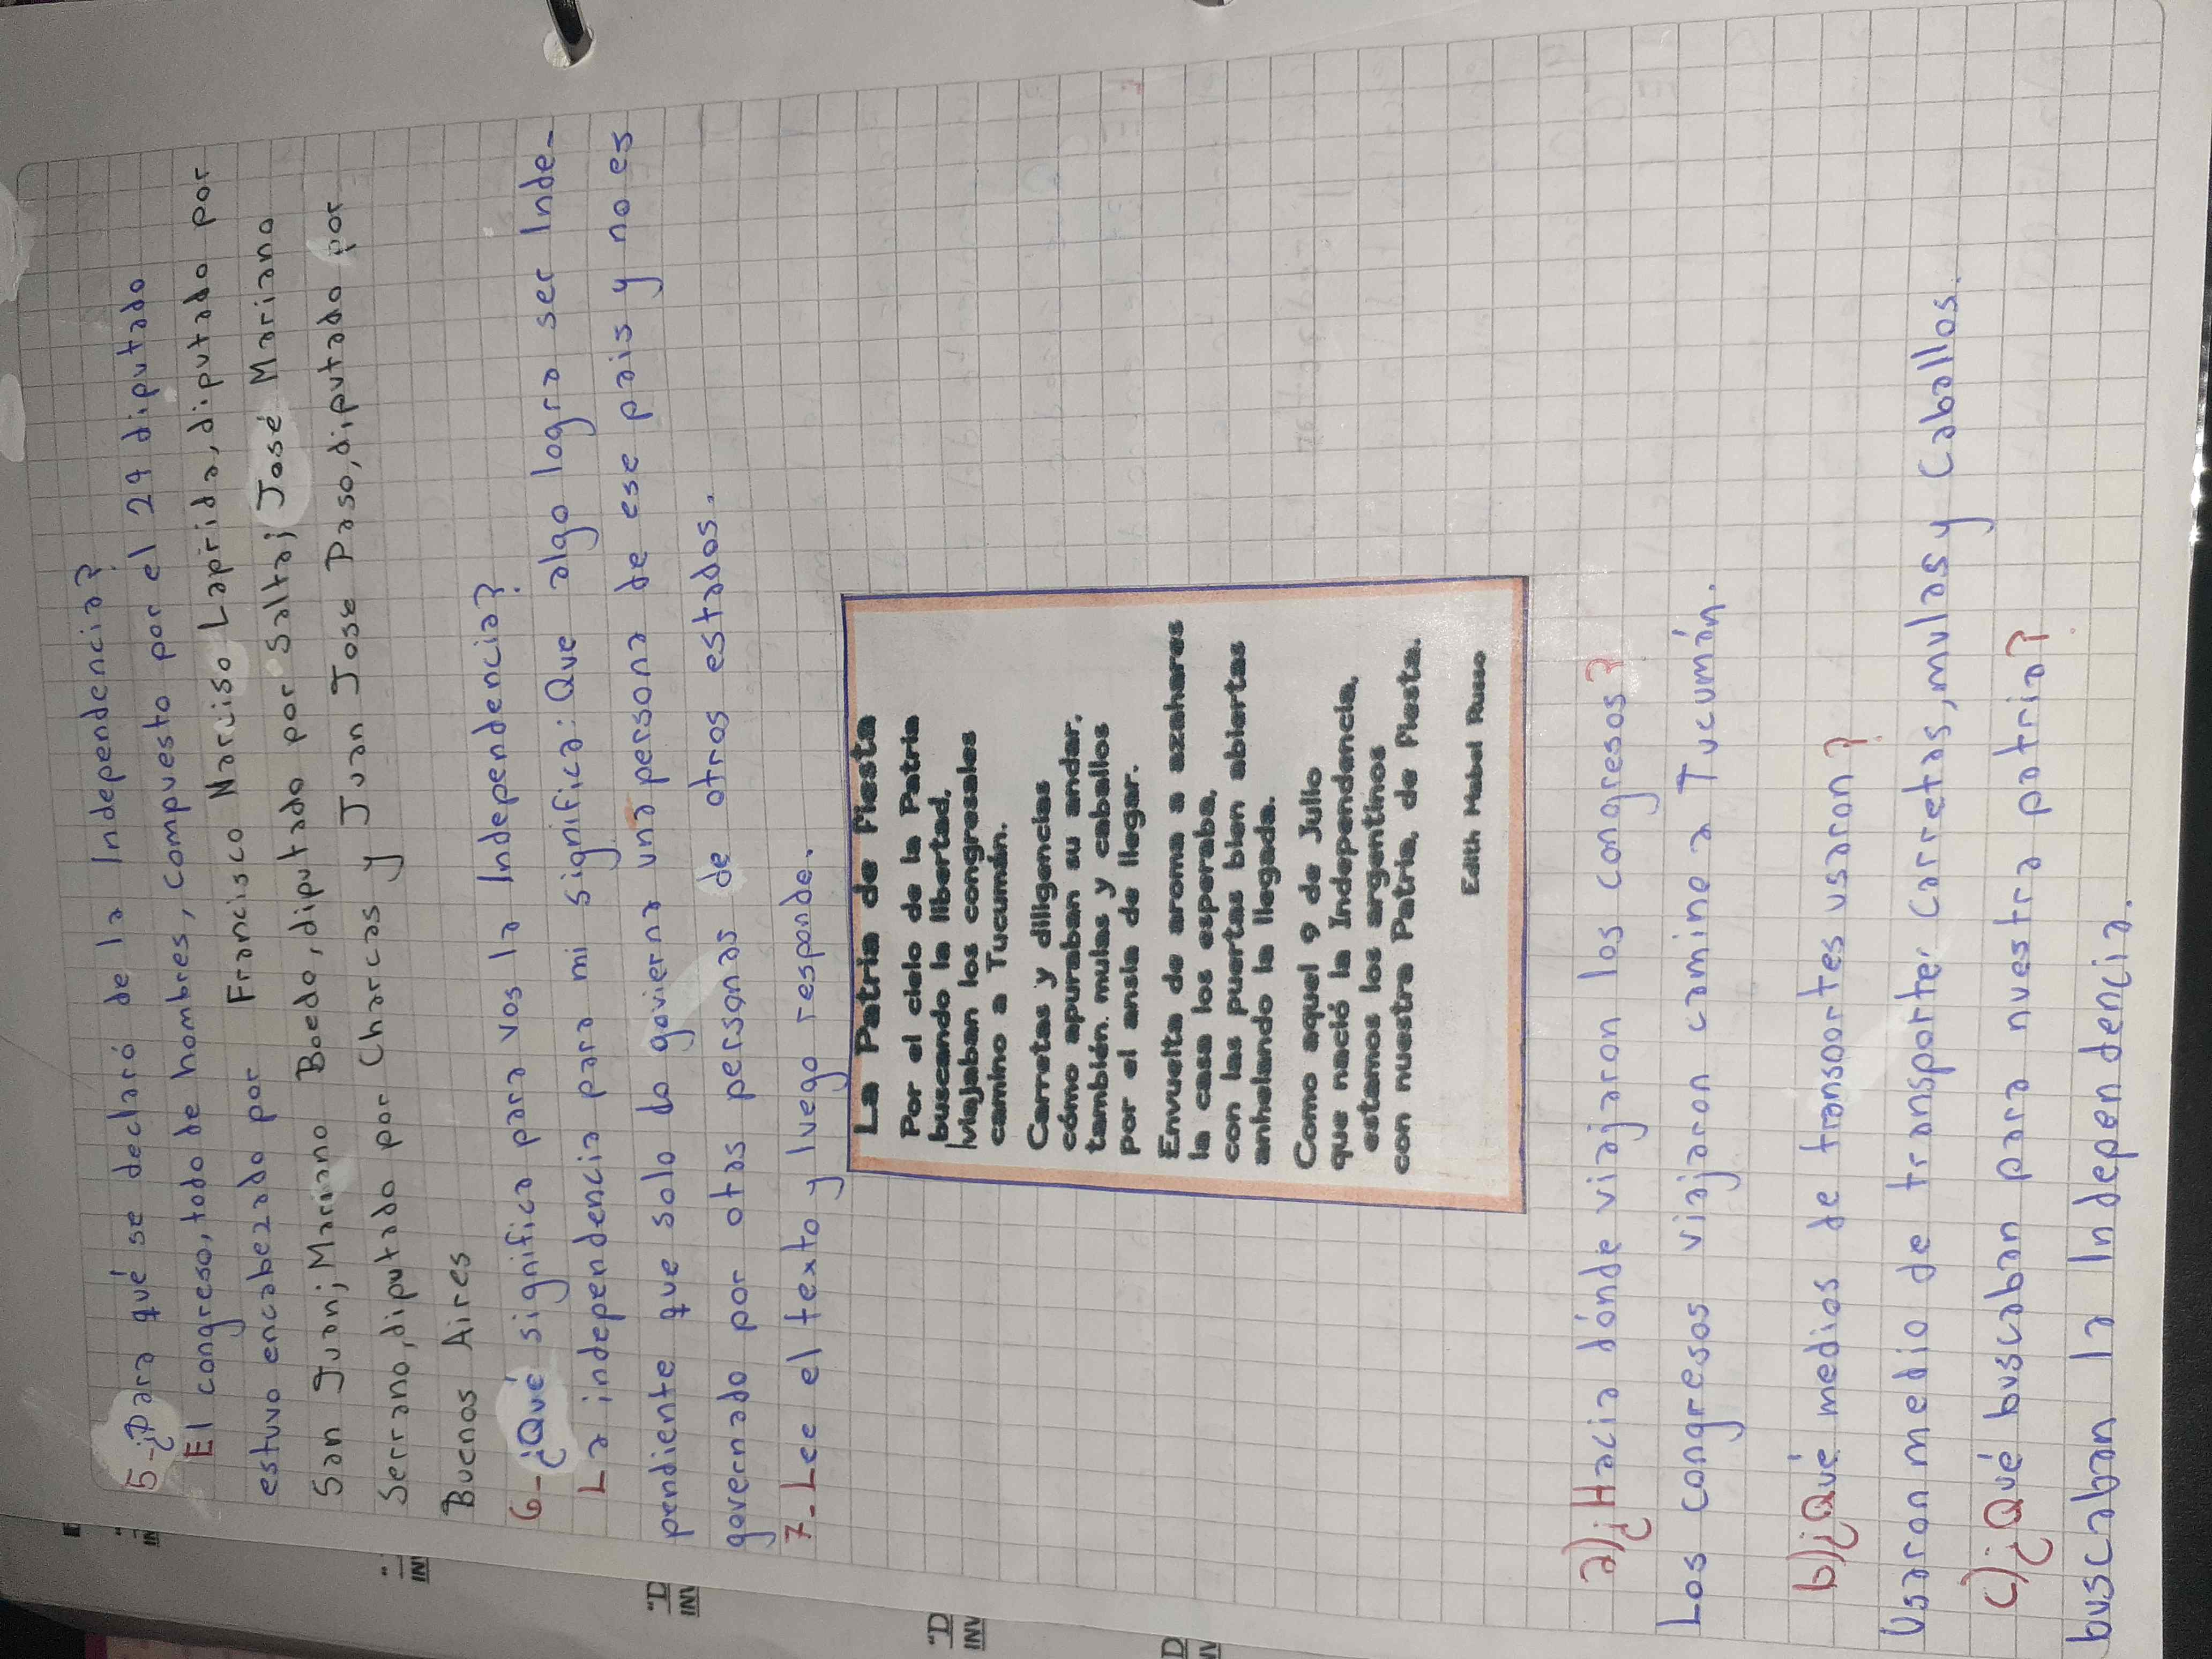 5-¿Para qué se declaró de la Independencia?
El congreso, todo de hombres, compuesto por el 29 diputado
estuvo encabezado por Francisco Narciso Laprida, diputado por
San Juan; Mariano Boedo, diputado por Salta; José Mariano
Serrano, diputado por Charcas y Juan Jose Paso, diputado por
Buenos Aires
6-¿Qué significa para vos la Independencia?
La independencia para mi significa: Que algo logra ser Inde-
pendiente que solo lo govierna una persona de ese pais y no es
governado por otas personas de otros estados.
7-Lee el texto y luego responde.
La Patria de Fiesta
Por el cielo de la Patria
buscando la libertad,
viajaban los congresales
camino a Tucumán.
Carretas y diligencias
cómo apuraban su andar,
también mulas y caballos
por el ansia de llegar.
Envuelta de aroma a azahares
la casa los esperaba,
con las puertas bien abiertas
anhelando la llegada.
Como aquel 9 de Julio
que nació la Independencia,
estamos los argentinos
con nuestra Patria, de Fiesta.
Edith Mabel Russo
a)¿Hacia dónde viajaron los congresos?
Los congresos viajaron camino a Tucumán.
b)¿Qué medios de transoortes usaron?
Usaron medio de transporte: Carretas, mulas y Caballos.
c)¿Qué buscaban para nuestra patria?
buscaban la Independencia.
"D
INV
"D
INV